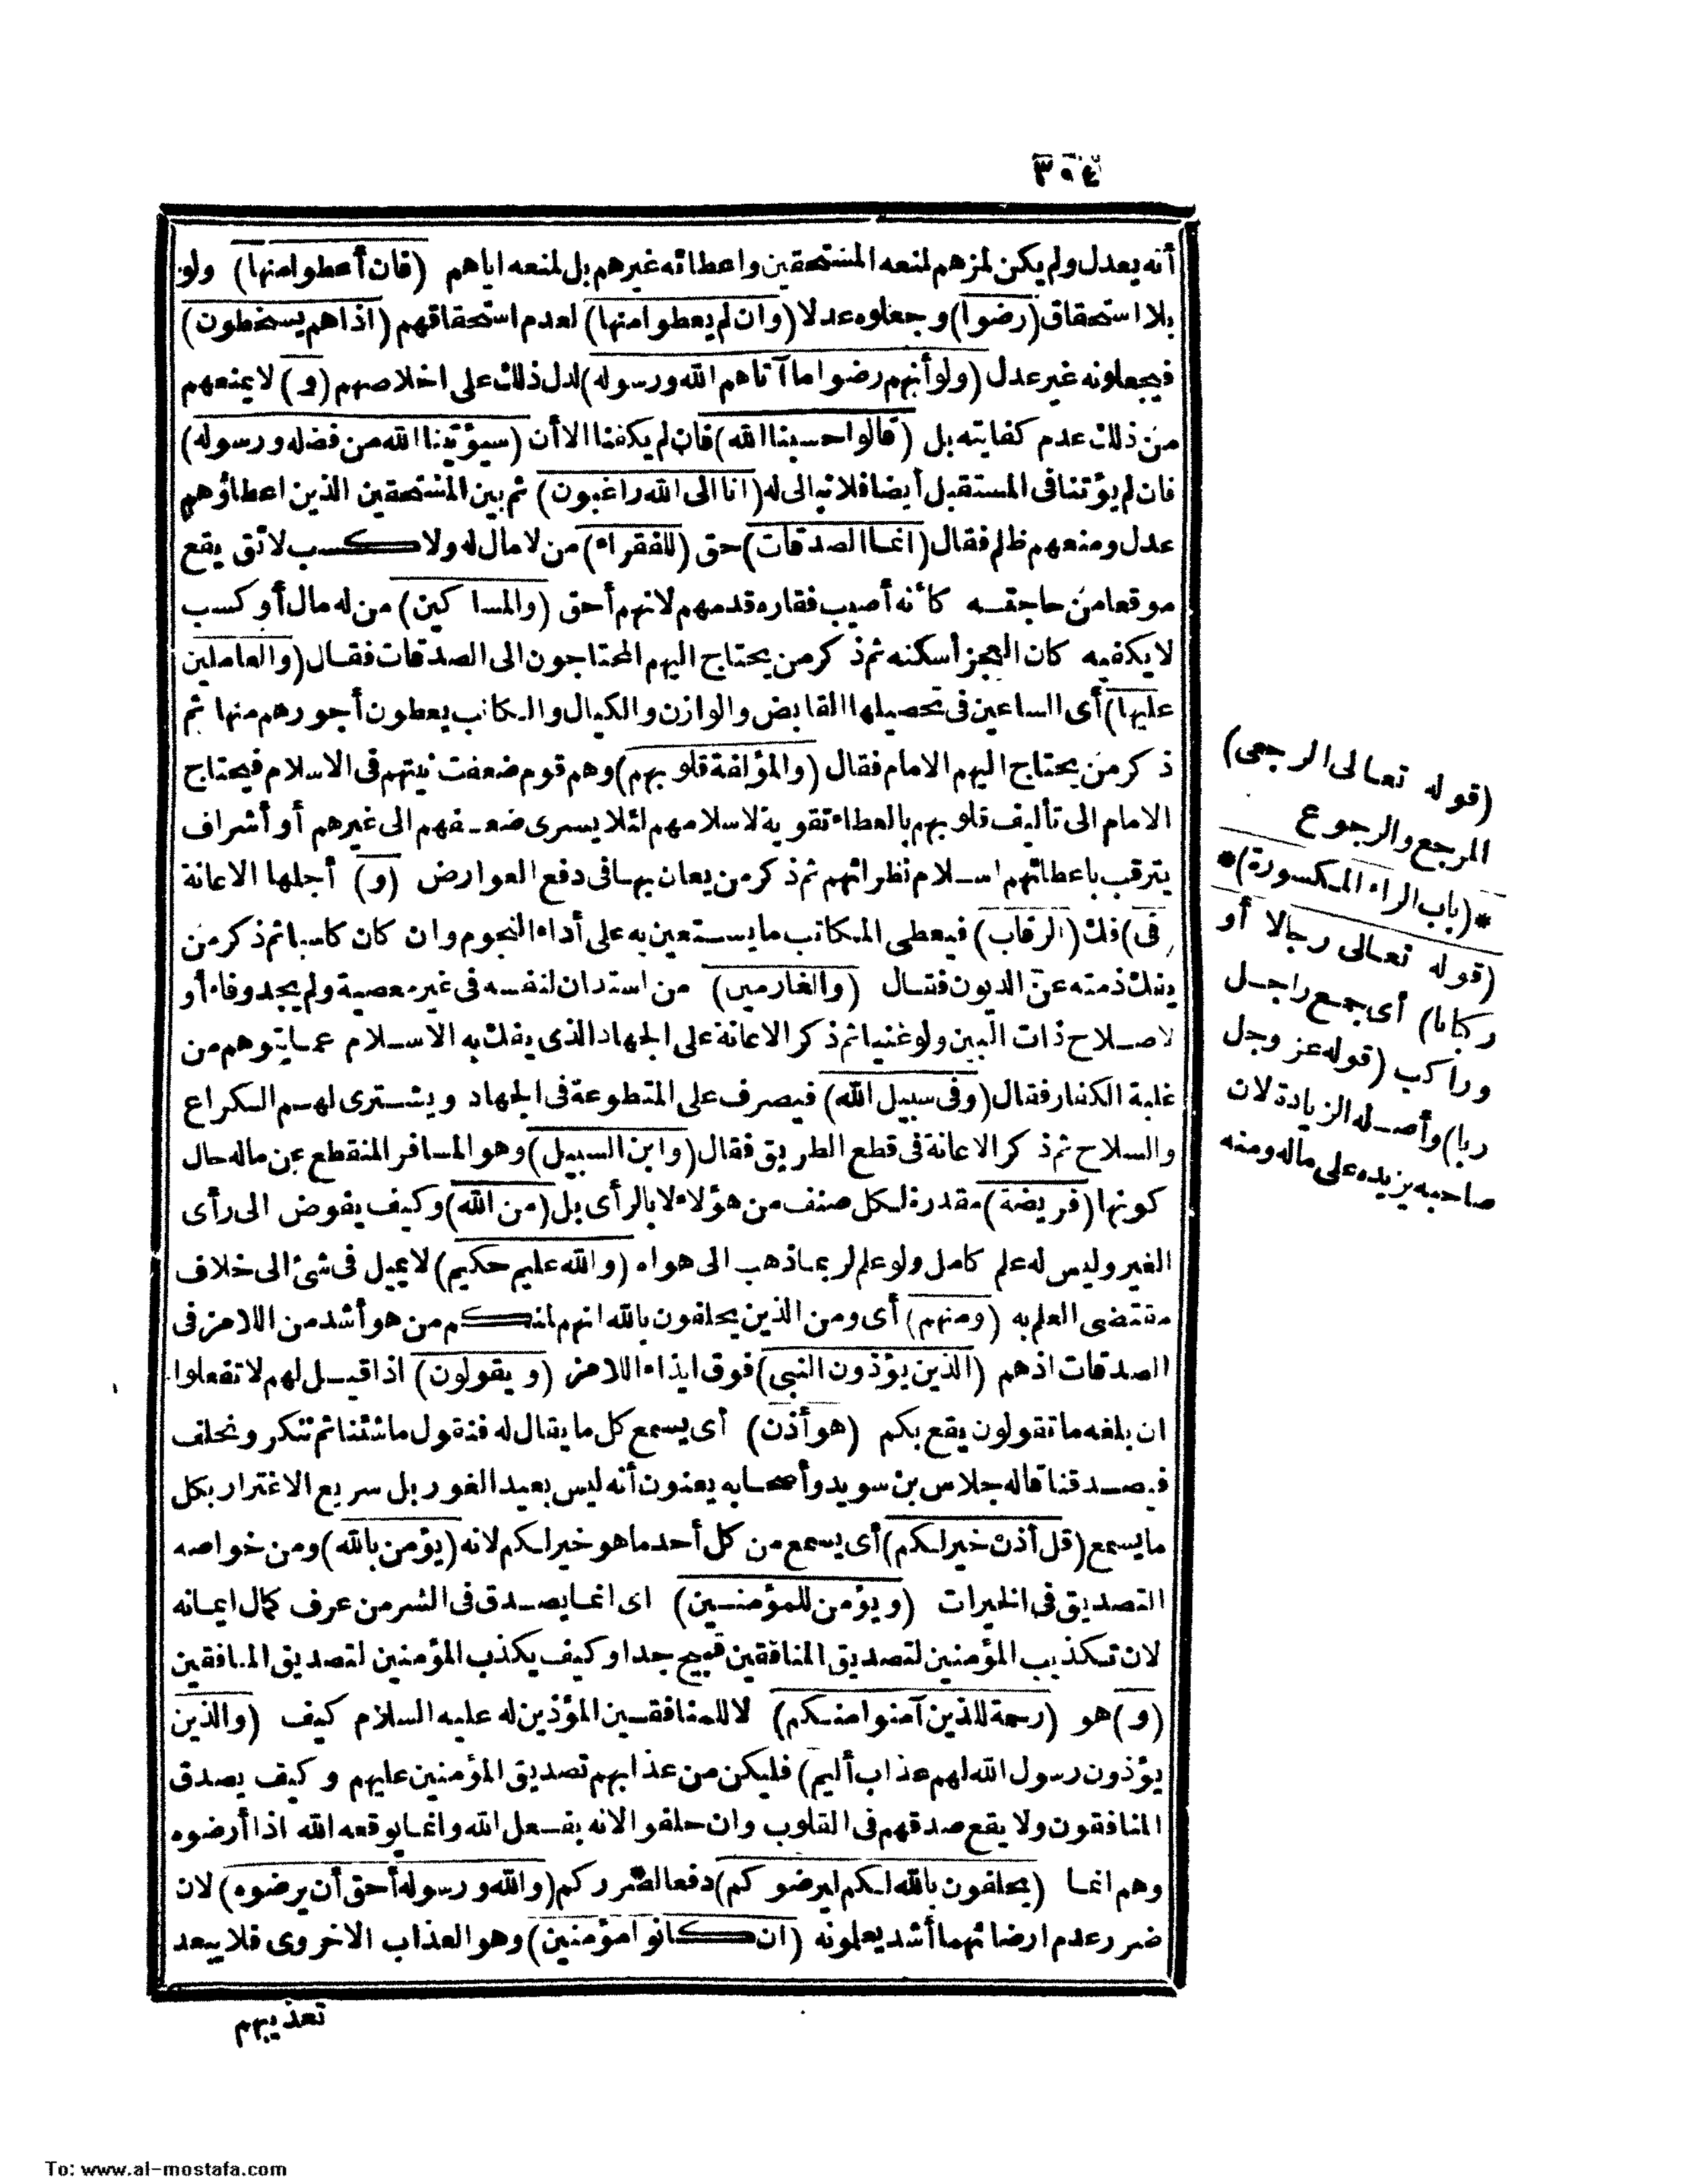 ٣٠٤
أنه يعدل ولم يكن لمزهم لمنعه المستحقين واعطائه غيرهم بل لمنعه اياهم (فان أعطوا منها) ولو
بلا استحقاق (رضوا) وجعلوه عدلا (وان لم يعطوا منها) لعدم استحقاقهم (اذا هم يسخطون)
فيجعلونه غير عدل (ولو أنهم رضوا ما آتاهم الله ورسوله) لدل ذلك على اخلاصهم (و) لا يمنعهم
من ذلك عدم كفايته بل (قالوا حسبنا الله) فان لم يكفنا الا أن (سيؤتينا الله من فضله ورسوله)
فان لم يؤتنا فى المستقبل أيضا فلا نبالى له (انا الى الله راغبون) ثم بين المستحقين الذين اعطاؤهم
عدل ومنعهم ظلم فقال (انما الصدقات) حق (للفقراء) من لا مال له ولا كسب لائق يقع
موقعا من حاجته كأنه أصيب فقاره قدمهم لانهم أحق (والمساكين) من له مال أو كسب
لا يكفيه كان العجز أسكنه ثم ذكر من يحتاج اليهم المحتاجون الى الصدقات فقال (والعاملين
عليها) أى الساعين فى تحصيلها القابض والوازن والكيال والكاتب يعطون أجورهم منها ثم
ذكر من يحتاج اليهم الامام فقال (والمؤلفة قلوبهم) وهم قوم ضعفت نيتهم فى الاسلام فيحتاج
الامام الى تأليف قلوبهم بالعطاء تقوية لاسلامهم لئلا يسرى ضعفهم الى غيرهم أو أشراف
يترقب باعطائهم اسلام نظرائهم ثم ذكر من يعان بها فى دفع العوارض (و) أجلها الاعانة
(فى) فك (الرقاب) فيعطى المكاتب ما يستعين به على أداء النجوم وان كان كاسبا ثم ذكر من
يفك ذمته عن الديون فقال (والغارمين) من استدان لنفسه فى غير معصية ولم يجد وفاء أو
لاصلاح ذات البين ولو غنيا ثم ذكر الاعانة على الجهاد الذى يفك به الاسلام عما يتوهم من
غلبة الكفار فقال (وفى سبيل الله) فيصرف على المتطوعة فى الجهاد ويشترى لهم الكراع
والسلاح ثم ذكر الاعانة فى قطع الطريق فقال (وابن السبيل) وهو المسافر المنقطع عن ماله حال
كونها (فريضة) مقدرة لكل صنف من هؤلاء لا بالرأى بل (من الله) وكيف يفوض الى رأى
الغير وليس له علم كامل ولو علم لربما ذهب الى هواه (والله عليم حكيم) لا يميل فى شئ الى خلاف
مقتضى العلم به (ومنهم) أى ومن الذين يحلفون بالله انهم لمنكم من هو أشد من اللامز فى
الصدقات اذ هم (الذين يؤذون النبى) فوق ايذاء اللامز (ويقولون) اذا قيل لهم لا تفعلوا
ان بلغه ما تقولون يقع بكم (هو أذن) أى يسمع كل ما يقال له فنقول ما شئنا ثم ننكر ونحلف
فيصدقنا قاله جلاس بن سويد وأصحابه يعنون أنه ليس بعيد الغور بل سريع الاغترار بكل
ما يسمع (قل أذن خير لكم) أى يسمع من كل أحد ما هو خير لكم لانه (يؤمن بالله) ومن خواصه
التصديق فى الخيرات (ويؤمن للمؤمنين) اى انما يصدق فى الشر من عرف كمال ايمانه
لان تكذيب المؤمنين لتصديق المنافقين قبيح جدا وكيف يكذب المؤمنين لتصديق المنافقين
(و) هو (رحمة للذين آمنوا منكم) لا للمنافقين المؤذين له عليه السلام كيف (والذين
يؤذون رسول الله لهم عذاب أليم) فليكن من عذابهم تصديق المؤمنين عليهم وكيف يصدق
المنافقون ولا يقع صدقهم فى القلوب وان حلفوا لانه بفعل الله وانما يوقعه الله اذا أرضوه
وهم انما (يحلفون بالله لكم ليرضوكم) دفعا لضرركم (والله ورسوله أحق أن يرضوه) لان
ضرر عدم ارضائهما أشد يعلمونه (ان كانوا مؤمنين) وهو العذاب الاخروى فلا يبعد
تعذيبهم
(قوله تعالى الرجعى)
المرجع والرجوع
*(باب الراء المكسورة)*
(قوله تعالى رجالا أو
ركبانا) أى جمع راجل
وراكب (قوله عز وجل
ربا) وأصله الزيادة لان
صاحبه يزيده على ماله ومنه
To: www.al-mostafa.com